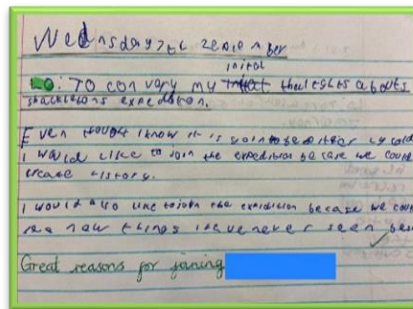 Wednsday 7th
inital
LO: TO convary my thoughts abouts
shackletons expedition.
Even though I know it is goin to be bitter ly cold
I would like to join the expedition be care we could
create history.
I would also like to join the expedition because we coul
see new things I have never seen be
Great reasons for joining